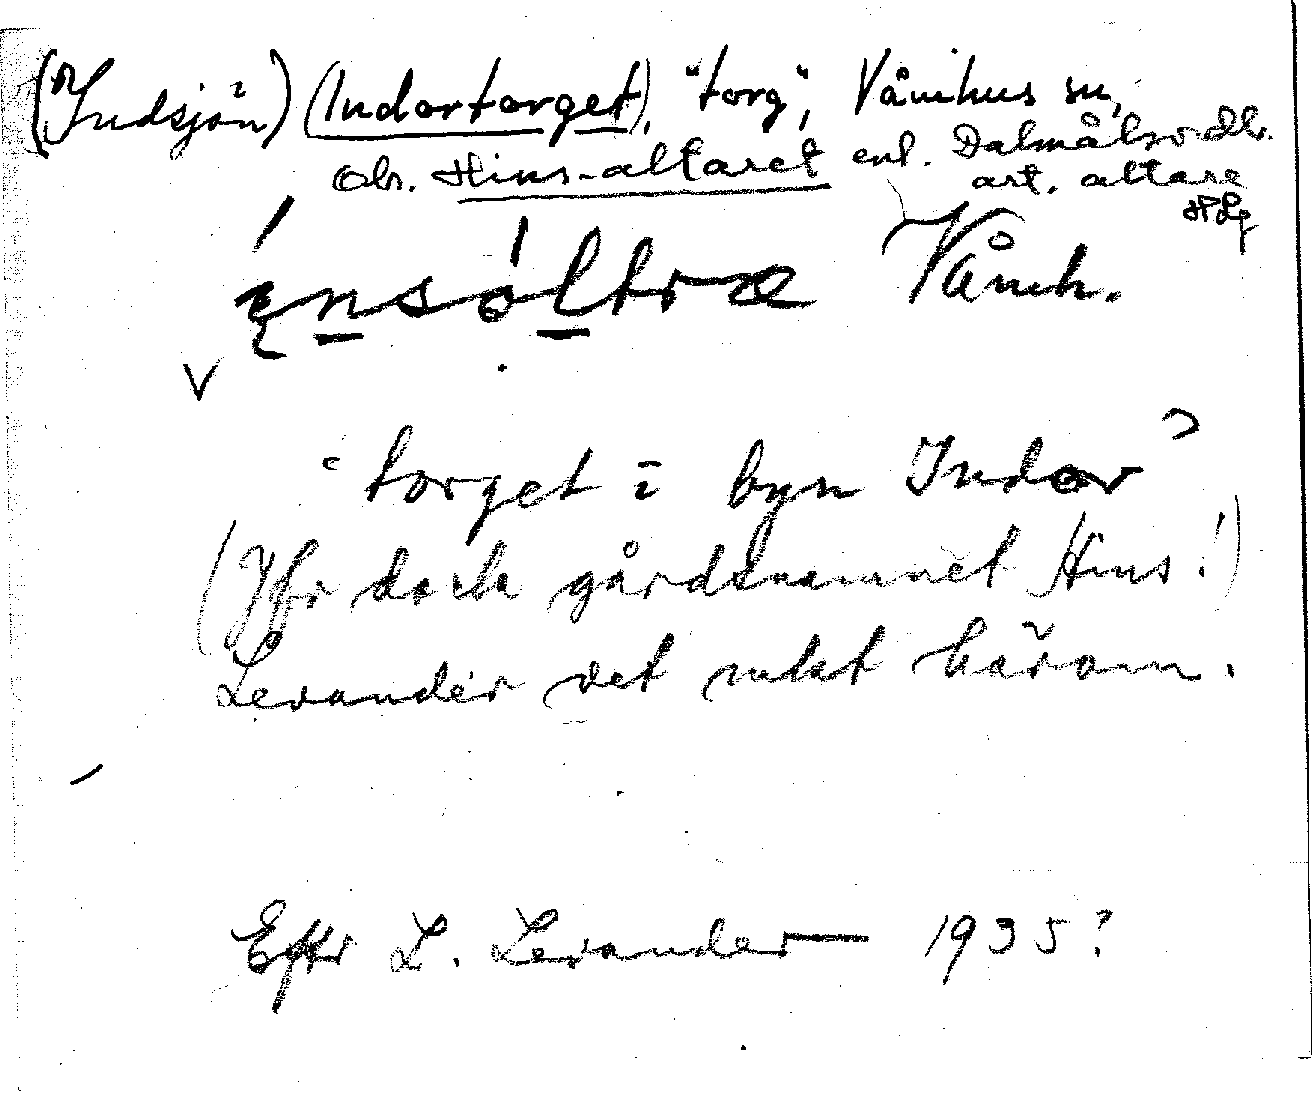 (Indsjön) (Indortorget), "torg", Våmhus sn,
obs. Hins-altaret enl. Dalmålsordb.
art. altare
į́nsóltræ Våmh.
"torget i byn Indor"
(Jfr dock gårdsnamnet Hins!)
Levander det rakt härom.
Eftr L. Levander 1935?